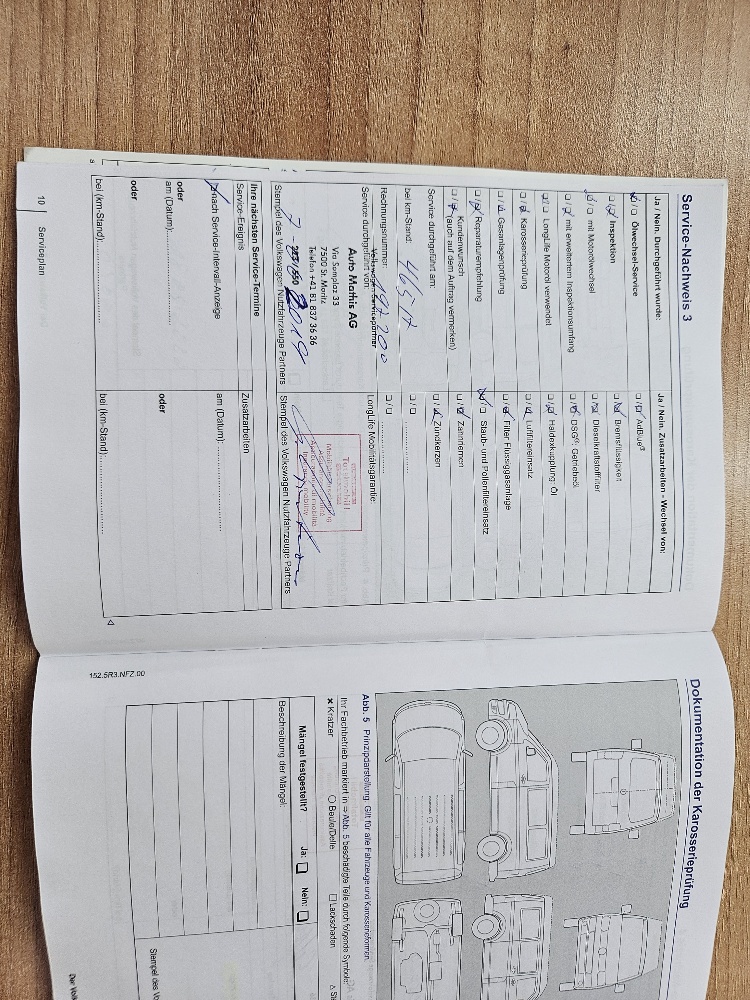 Service-Nachweis 3
Ja / Nein: Durchgeführt wurde:
Ölwechsel-Service
Inspektion
mit Motorölwechsel
mit erweitertem Inspektionsumfang
LongLife Motoröl verwendet
Karosserieprüfung
Gasanlagenprüfung
Reparaturempfehlung
Kundenwunsch
(auch auf dem Auftrag vermerken)
Service durchgeführt am:
bei km-Stand: 46517
Rechnungsnummer: 197 200
Service durchgeführt von:
Auto Mathis AG
Via Somplaz 33
7500 St. Moritz
Telefon +41 81 837 36 36
Stempel des Volkswagen Nutzfahrzeuge Partners
Ja / Nein: Zusatzarbeiten - Wechsel von:
AdBlue®
Bremsflüssigkeit
Dieselkraftstofffilter
DSG®: Getriebeöl
Haldexkupplung: Öl
Luftfiltereinsatz
Filter Flüssiggasanlage
Staub- und Pollenfiltereinsatz
Zahnriemen
Zündkerzen
LongLife Mobilitätsgarantie:
Totalmobil!
Stempel des Volkswagen Nutzfahrzeuge Partners
Ihre nächsten Service-Termine
Service-Ereignis
nach Service-Intervall-Anzeige
oder
am (Datum):
oder
bei (km-Stand):
Zusatzarbeiten
am (Datum):
oder
bei (km-Stand):
10 Serviceplan
Dokumentation der Karosserieprüfung
Abb. 5 Prinzipdarstellung: Gilt für alle Fahrzeuge und Karosserieformen.
Ihr Fachbetrieb markiert in ⇒ Abb. 5 beschädigte Teile durch folgende Symbole:
× Kratzer ○ Beule/Delle □ Lackschaden
Mängel festgestellt? Ja: Nein:
Beschreibung der Mängel:
152.5R3.NFZ.00